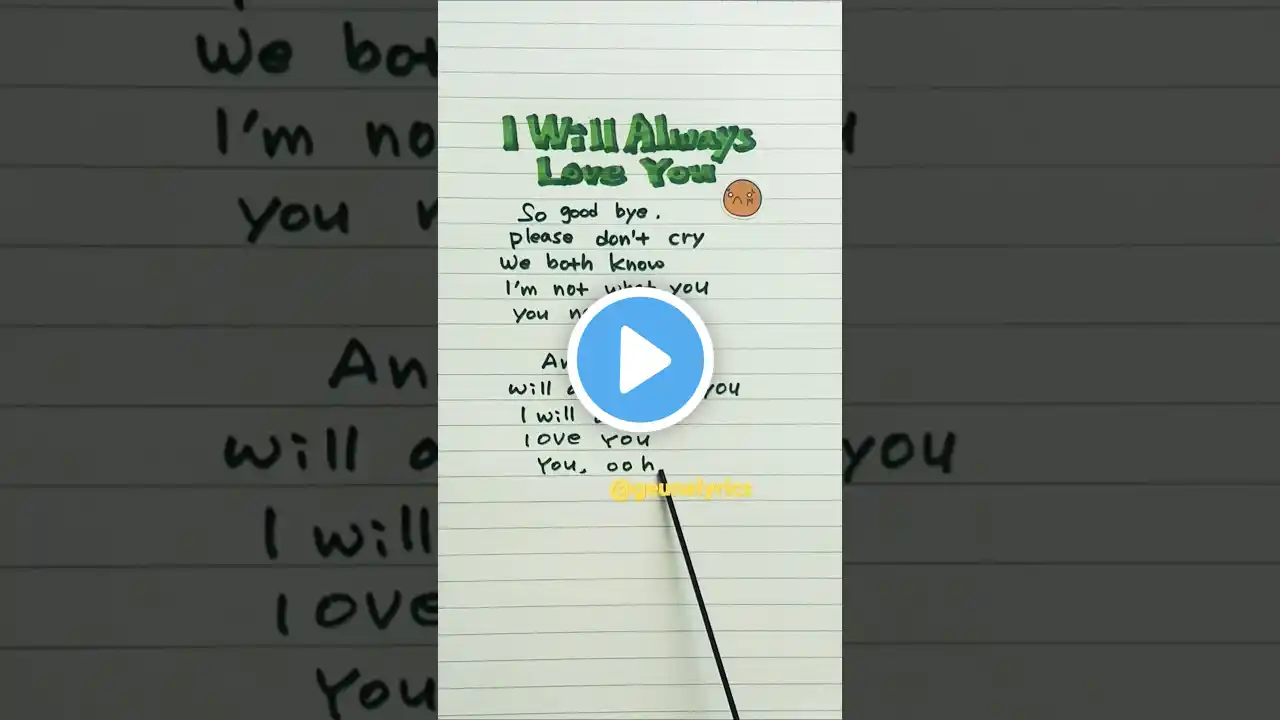 I Will Always
Love You
So good bye.
please don't cry
We both know
I'm not what you
you
will you
I will
love you
You, ooh